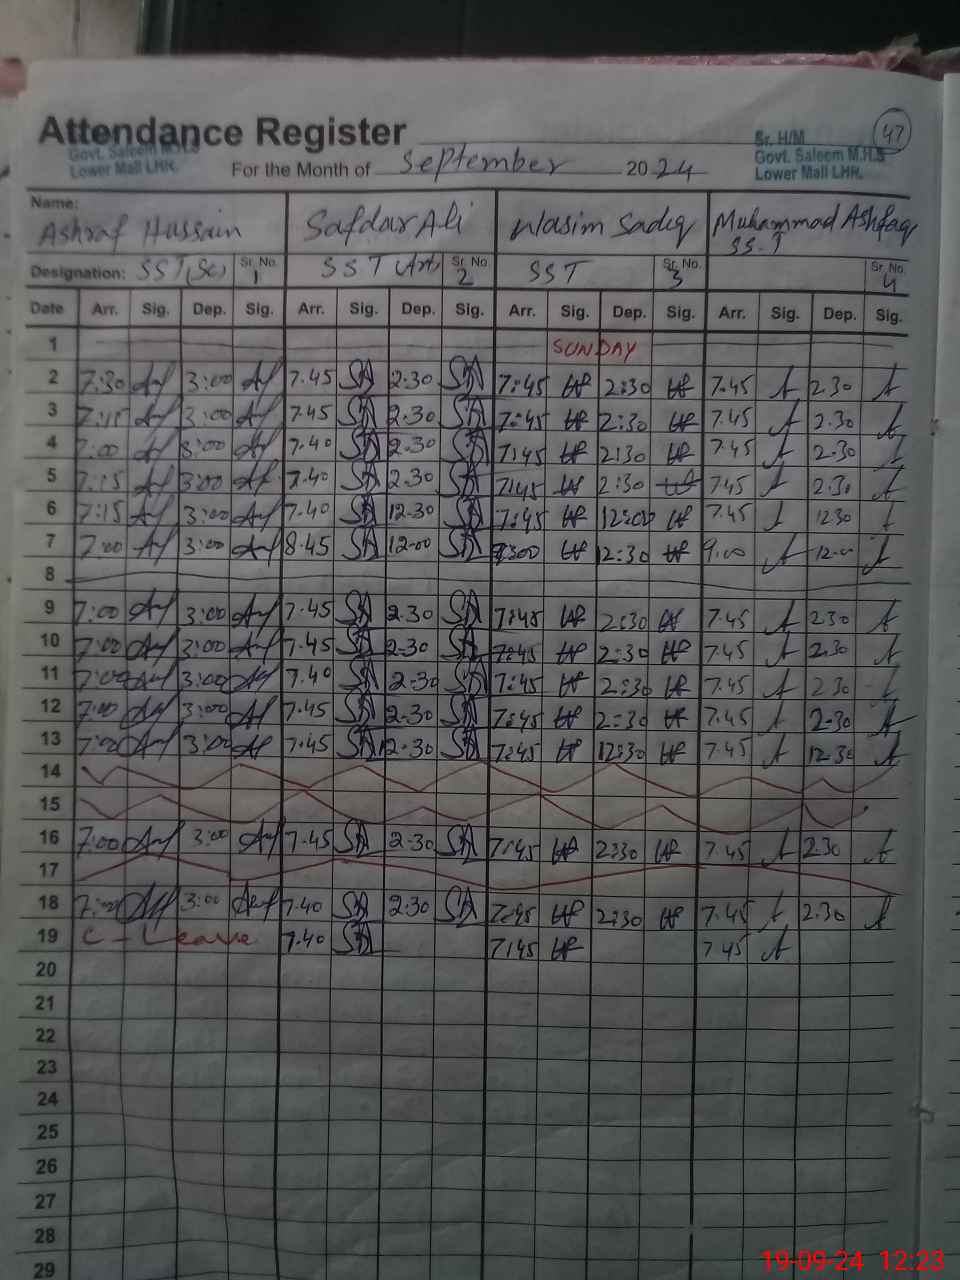 Attendance Register
Govt. Saleem M.H.S
Lower Mall LHR.
Sr. H/M
Govt. Saleem M.H.S
Lower Mall LHR.
47
For the Month of September 2024
Name:
Ashraf Hussain Safdar Ali Wasim Sadiq Muhammad Ashfaq
Designation: SST(Sc) Sr. No. 1 SST (Art) Sr. No. 2 SST Sr. No. 3 SS.T Sr. No. 4
Date Arr. Sig. Dep. Sig. Arr. Sig. Dep. Sig. Arr. Sig. Dep. Sig. Arr. Sig. Dep. Sig.
1 SUNDAY
2 7:30 3:00 7.45 SA 2.30 SA 7:45 2:30 7.45 2.30
3 3:00 7.45 SA 2.30 SA 7:45 2:30 7.45 2.30
4 7:00 7.40 SA 2.30 SA 7:45 2:30 7.45 2.30
5 7:15 3:00 7.40 SA 2.30 SA 7:45 2:30 7.45 2.30
6 7:15 3:00 7.40 SA 12.30 SA 7:45 7.45 12.30
7 7:00 3:00 8.45 SA 12.00 SA 12:30 9.00 12.00
8
9 7:00 3:00 7.45 SA 2.30 SA 7:45 2:30 7.45 2.30
10 7:00 3:00 7.45 SA 2.30 SA 7:45 2:30 7.45 2.30
11 7:00 3:00 7.40 SA 2.30 SA 7:45 2:30 7.45 2.30
12 7:00 3:00 7.45 SA 2.30 SA 7:45 2:30 7.45 2.30
13 7:00 3:00 7.45 SA 12.30 SA 7:45 12:30 7.45 12.30
14
15
16 7:00 3:00 7.45 SA 2.30 SA 7:45 2:30 7.45 2.30
17
18 7:00 3:00 7.40 SA 2.30 SA 7:45 2:30 7.45 2.30
19 C - Leave 7.40 SA 7:45 7.45
20
21
22
23
24
25
26
27
28
29
19-09-24 12:23